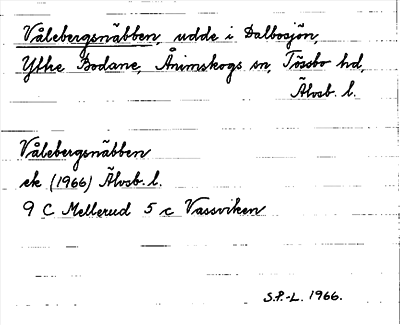 Vålebergsnäbben, udde i Dalbosjön,
Yttre Bodane, Ånimskogs sn, Tössbo hd,
Älvsb. l.
Vålebergsnäbben
ek (1966) Älvsb. l.
9 C Mellerud 5 c Vassviken
S.P.-L. 1966.